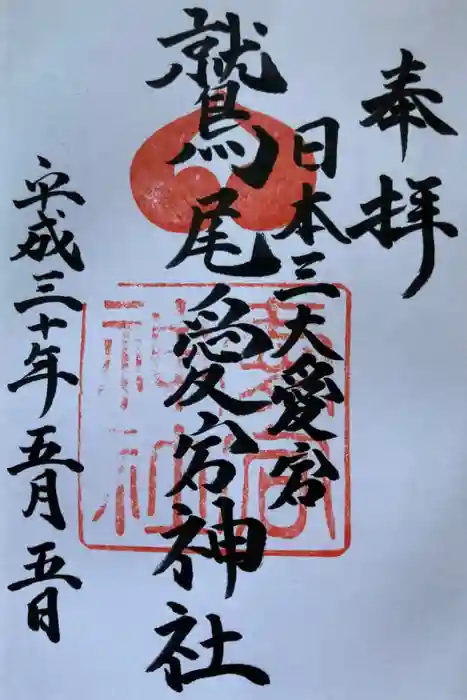 奉拝
日本三大愛宕
鷲尾愛宕神社
平成三十年五月五日
愛宕
神社